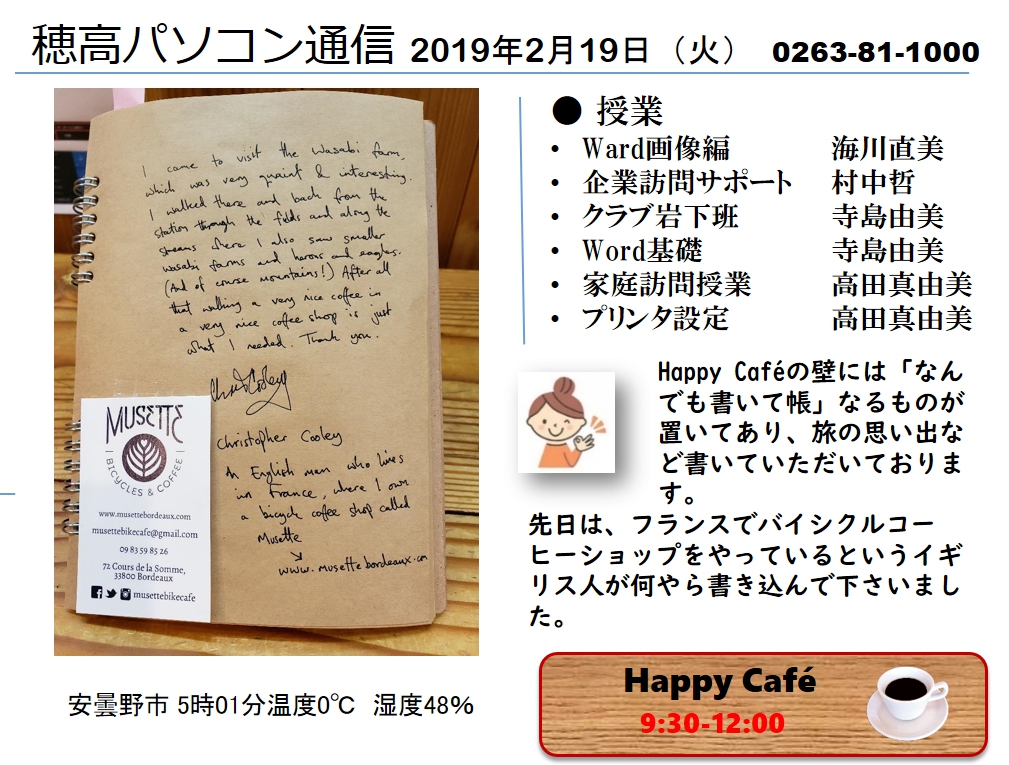 穂高パソコン通信 2019年2月19日（火） 0263-81-1000
I came to visit the Wasabi farm,
which was very quaint & interesting.
I walked there and back from the
station through the fields and along the
streams where I also saw smaller
wasabi farms and herons and eagles.
(And of course mountains!) After all
that walking a very nice coffee in
a very nice coffee shop is just
what I needed. Thank you.
Christopher Cooley
An English man who lives
in France, where I own
a bicycle coffee shop called
Musette
www.musettebordeaux.com
MUSETTE
BICYCLES & COFFEE
www.musettebordeaux.com
musettebikecafe@gmail.com
09 83 59 85 26
72 Cours de la Somme,
33800 Bordeaux
musettebikecafe
安曇野市 5時01分温度0℃ 湿度48%
● 授業
• Ward画像編 海川直美
• 企業訪問サポート 村中哲
• クラブ岩下班 寺島由美
• Word基礎 寺島由美
• 家庭訪問授業 高田真由美
• プリンタ設定 高田真由美
Happy Caféの壁には「なん
でも書いて帳」なるものが
置いてあり、旅の思い出な
ど書いていただいておりま
す。
先日は、フランスでバイシクルコー
ヒーショップをやっているというイギ
リス人が何やら書き込んで下さいまし
た。
Happy Café
9:30-12:00